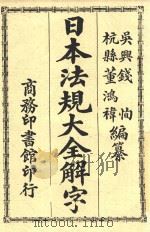 吳興錢恂
杭縣董鴻禕
編纂
日本法規大全解字
商務印書館印行